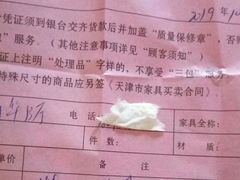 2019年10
凭证须到银台交齐货款后并加盖“质量保修章”，否
”服务。（其他注意事项详见“顾客须知”）
证上注明“处理品”字样的，不享受“三包”服
特殊尺寸的商品应另签《天津市家具买卖合同》
家具全称：
件数：
备注